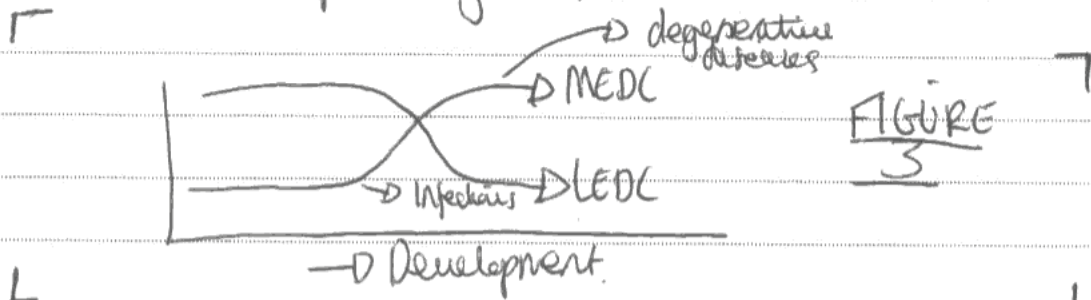 degenerative
diseases
MEDC
FIGURE
3
Infectious
LEDC
Development.